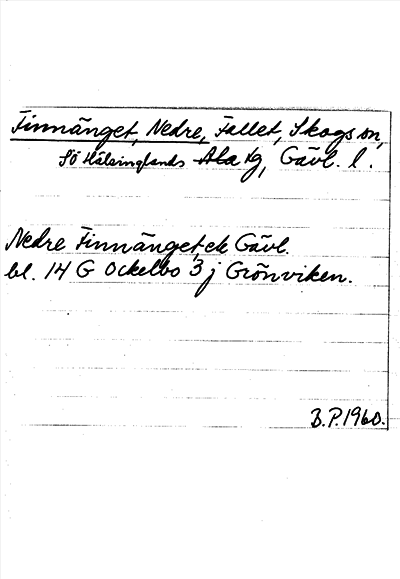 Finnänget, Nedre, Fallet, Skogs sn,
Sö Hälsinglands Ala tg, Gävl. l.
Nedre Finnänget, ek Gävl.
bl. 14 G Ockelbo 3 j Grönviken.
B.P. 1960.